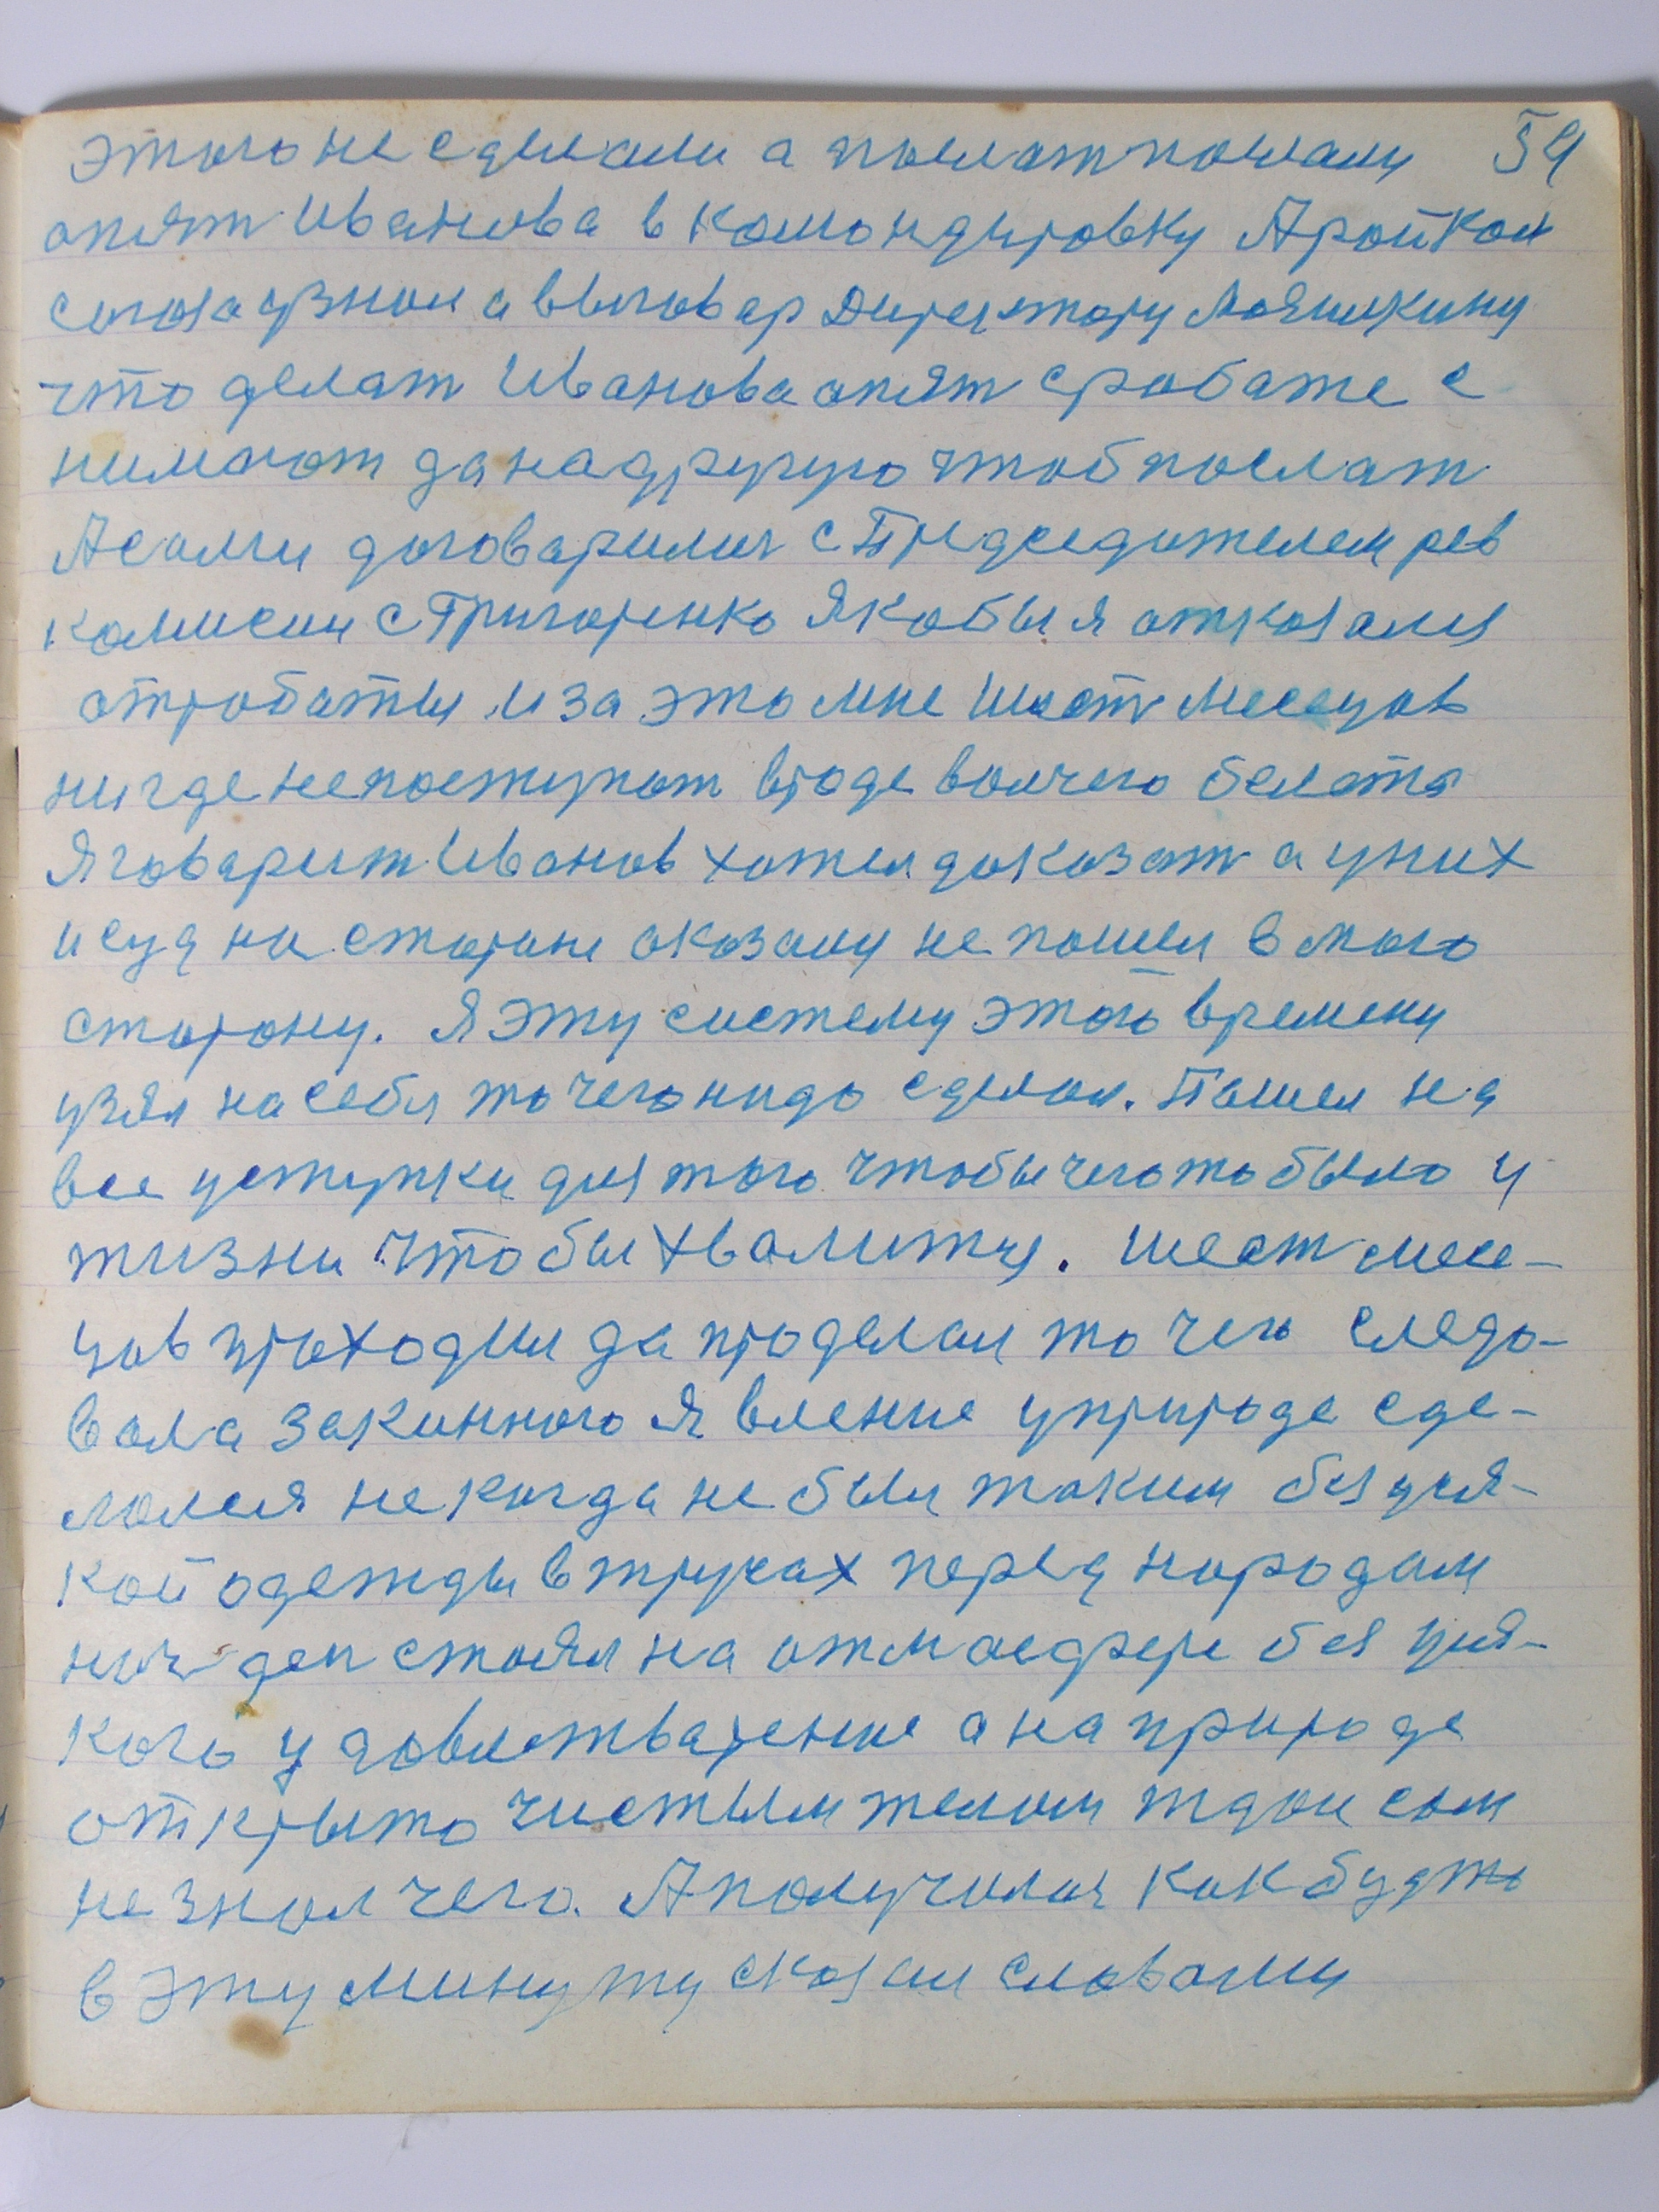 этого не сделали а послат послали 54
опят Иванова в комондировку А рейкои
союза узнои а выговар Директору Мояшкину
что делат Иванова опят с работе с
нимают да на другую чтоб послат
А сами договарилис с Председателем рев
комисеи с Григоренко Якобы я отказался
отроботыя и за это мне шест месецов
нигде непоступат вроде волчего белета
Я говарит Иванов хотел доказат а у них
и суд на стороне оказалу не пошел в мою
сторону. Я эту систему этого времени
узял на себя то чего надо сделал. Пошел на
все уступки для того чтобы чегото было у
жизни что бы хвалится. шест месе-
цов проходил да проделал то чего следо-
вала законного явление у природе сде-
лолся не когда не был таким без уся-
кой одежды в трусах перед народам
ноч ден стоял на отмосфере без уся-
кого удовлетварение а на природе
открыто чистым телом ждал сам
не знал чего. А получилос как будто
в эту минуту сказал словами